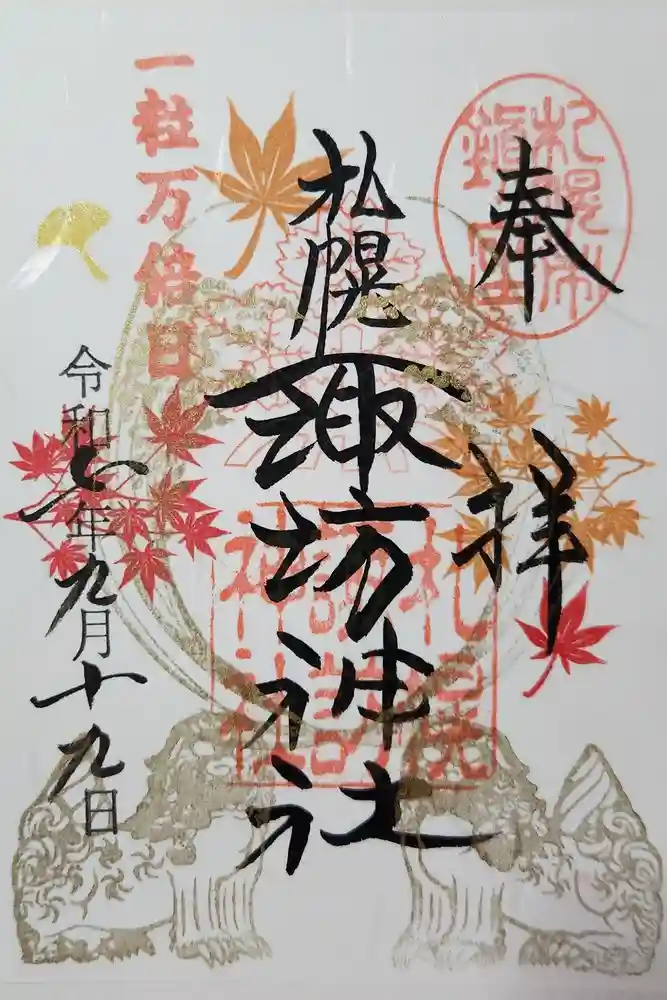 奉拝
札幌市
鎮座
札幌諏訪神社
札幌
諏訪
神社
一粒万倍日
令和七年九月十九日